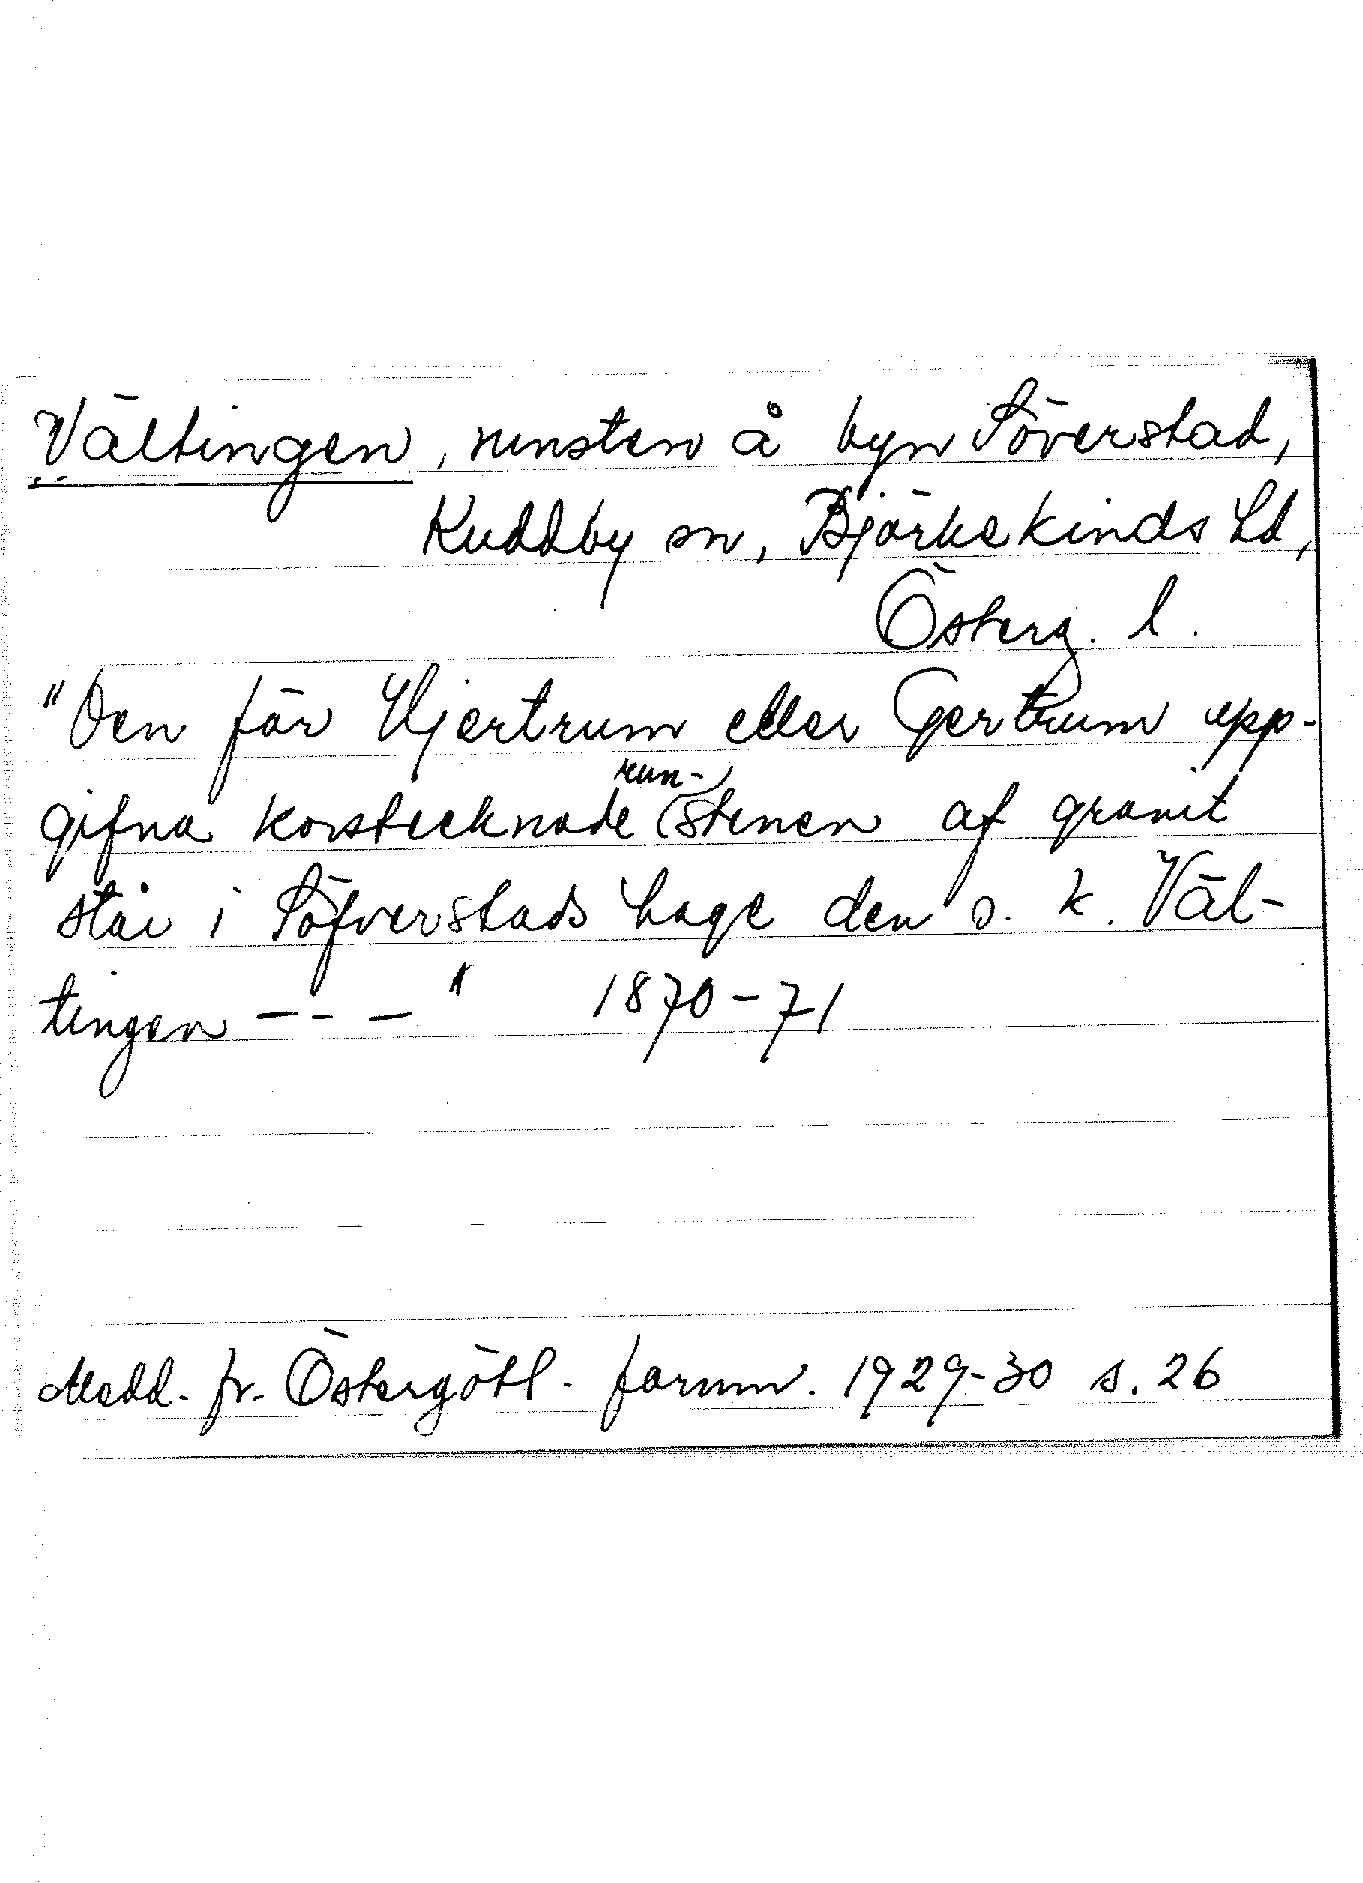 Vältingen, runsten å byn Söverstad,
Kuddby sn, Björkekinds hd,
Österg. l.
"Den för Hjertrum eller Gertrum upp-
gifna korstecknade run-stenen af granit
står i Söfverstads hage den s. k. Väl-
tingen --- " 1870-71
Medd. fr. Östergötl. fornm. 1929-30 s. 26